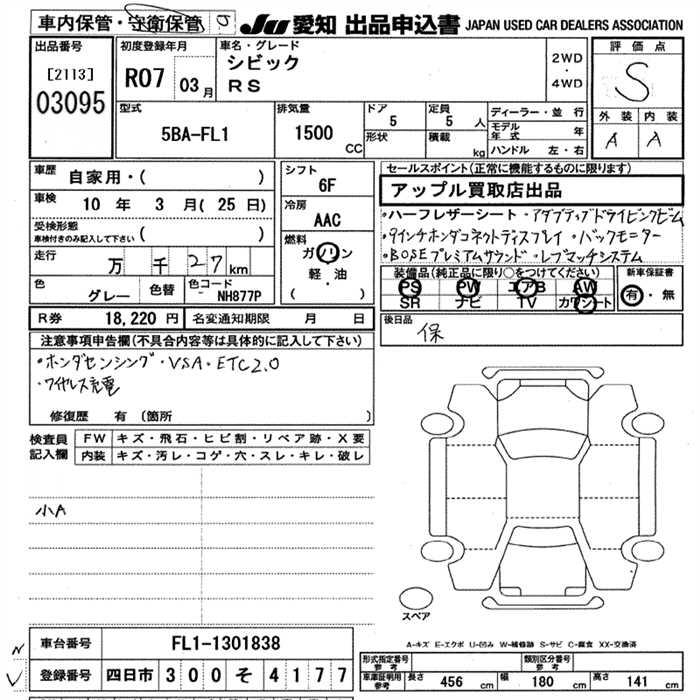 車内保管・守衛保管
JU 愛知 出品申込書 JAPAN USED CAR DEALERS ASSOCIATION
出品番号
[2113]
03095
初度登録年月
R07 03月
車名・グレード
シビック
RS
2WD
・
4WD
評価点
S
外装 内装
A A
型式
5BA-FL1
排気量
1500 CC
ドア
5
形状
定員
5 人
積載
kg
ディーラー・並 行
モデル年式 年
ハンドル 左・右
車歴
自家用・( )
車検
10 年 3 月(25 日)
受検形態
車検付きのみ記入して下さい ( )
走行
万 千 27 km
色
グレー
色替
色コード
NH877P
シフト
6F
冷房
AAC
燃料
ガソリン
軽・油
( )
セールスポイント(正常に機能するものに限ります)
アップル買取店出品
・ハーフレザーシート・アダプティブドライビングビーム
・9インチホンダコネクトディスプレイ・バックモニター
・BOSEプレミアムサウンド・レブマッチシステム
装備品(純正品に限り○をつけてください)
PS PW エアB AW
SR ナビ TV カワシート
新車保証書
有・無
R券 18,220 円
名変通知期限 月 日
後日品
保
注意事項申告欄(不具合内容等は具体的に記入して下さい)
・ホンダセンシング・VSA・ETC2.0
・ワイヤレス充電
修復歴 有 (箇所 )
検査員記入欄
FW キズ・飛石・ヒビ割・リペア跡・X要
内装 キズ・汚レ・コゲ・穴・スレ・キレ・破レ
小A
スペア
A-キズ E-エクボ U-凹み W-補修跡 S-サビ C-腐食 XX-交換済
車台番号 FL1-1301838
登録番号 四日市 300 そ 4177
型式指定番号 参考
類別区分番号 参考
車庫証明用 参考 長さ 456 cm 幅 180 cm 高さ 141 cm